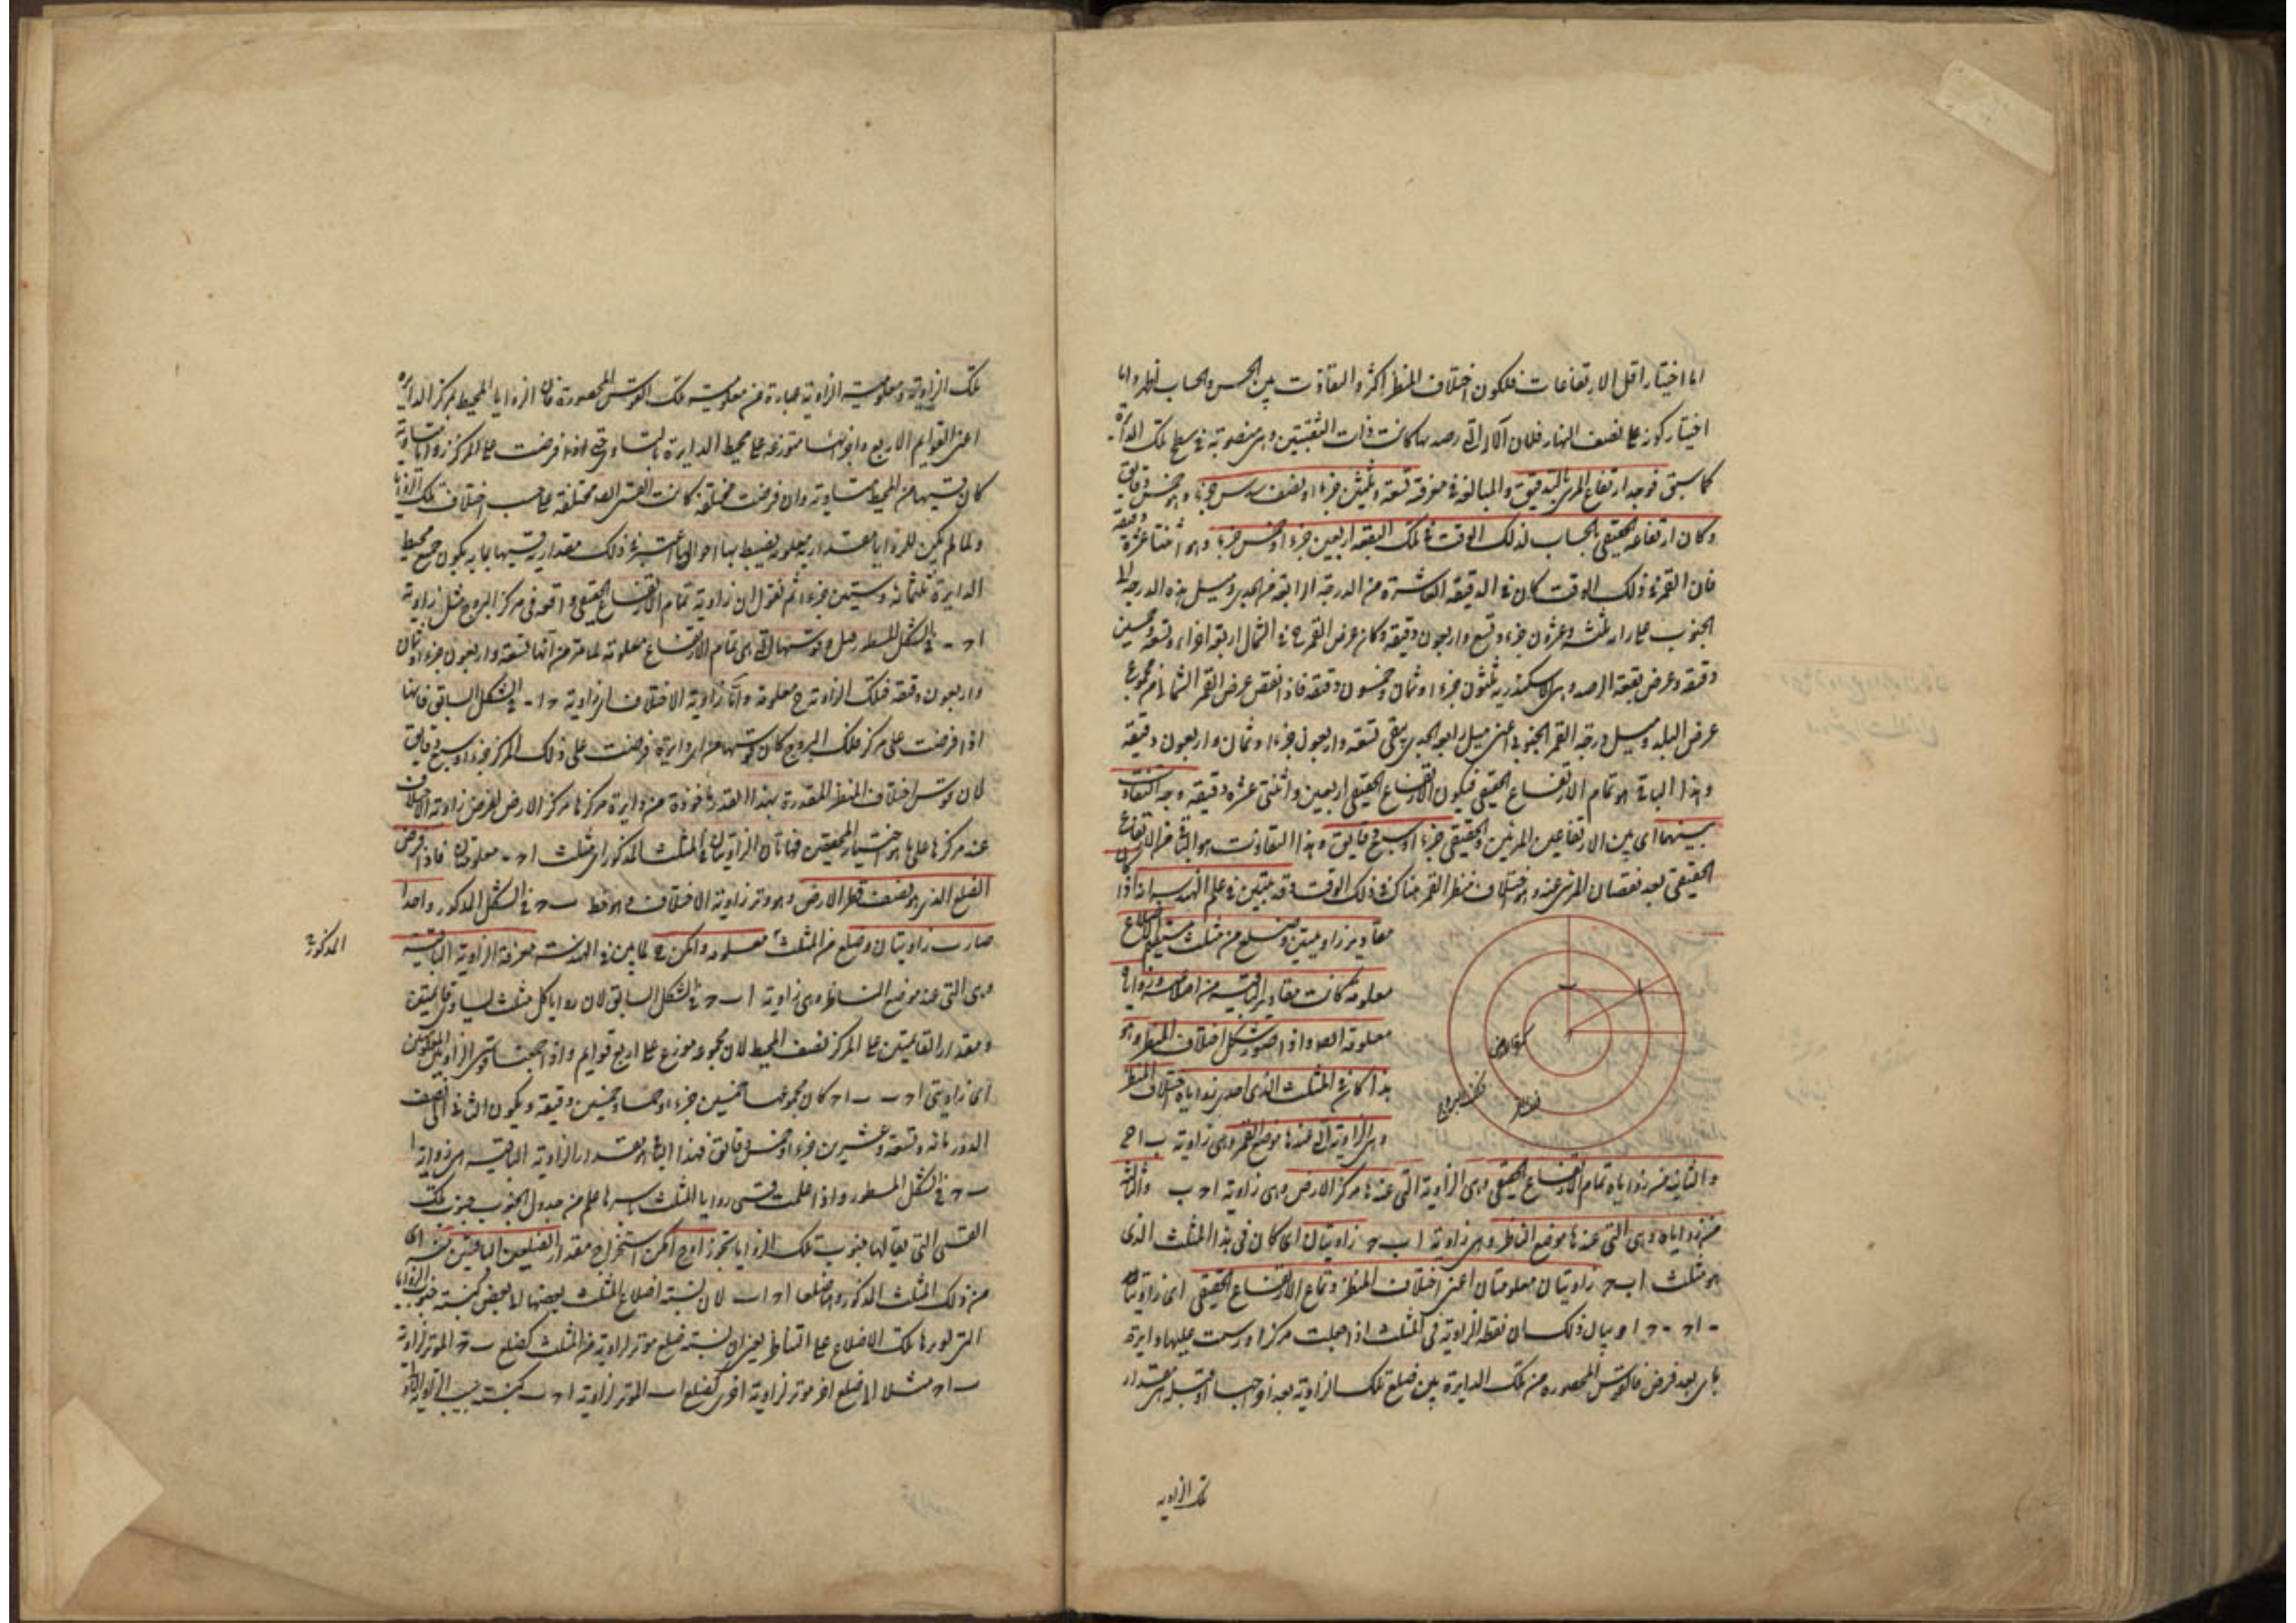 اما اختيار اقل الارتفاعات فلكون اختلاف المنظر اكثر والتفاوت بين الحس والحساب اظهر واما
اختيار كونه على نصف النهار فلان الآلة التي رصد بها كانت ذات الثقبتين وهى منصوبة فى سطح تلك الدائرة
كما سبق فوجد ارتفاع المرئى بالتدقيق والمبالغة فى معرفة تسعة وثلثين جزءا ونصف سدس جزء وهو خمس دقايق
وكان ارتفاعه الحقيقى بالحساب لذلك الوقت فى تلك البقعة اربعين جزءا وخمس جزء وهو اثنتا عشرة دقيقة
فان القمر فى ذلك الوقت كان فى الدقيقة العاشرة من الدرجة الرابعة من الجدى وميل هذه الدرجة الى
الجنوب ثلثة وعشرون جزءا وتسع واربعون دقيقة وكان عرض القمر ح فى الشمال اربعة اجزاء وتسعة وخمسين
دقيقة وعرض بقعة الرصد وهى الاسكندرية ثلثون جزءا وثمان وخمسون دقيقة فاذا نقص عرض القمر الشمالى من مجموع
عرض البلد وميل درجة القمر الجنوبى اعنى ميل رابعة الجدى يبقى تسعة واربعون جزءا وثمان واربعون دقيقة
وهذا الباقى هو تمام الارتفاع الحقيقى فيكون الارتفاع الحقيقى اربعين واثنتى عشرة دقيقة وجد التفاوت
بينهما اى بين الارتفاعين المرئى والحقيقى جزءا وسبع دقايق وهذا التفاوت هو الباقى من الارتفاع
الحقيقى بعد نقصان المرئى عنه وهو اختلاف منظر القمر هناك فى ذلك الوقت وقد تبين فى علم الهندسة انه اذا
مقادير زاويتين وضلع من مثلث مستقيم الاضلاع
معلومة كانت مقادير الباقية من اضلاعه وزواياه
معلومة ايضا واذا صور شكل اختلاف المنظر وهو
هذا كان فى المثلث الذى احدى زواياه اختلاف المنظر
وهى الزاوية التى عندها موضع القمر وهى زاوية ب ا ح
والثانية من زواياه تمام الارتفاع الحقيقى وهى الزاوية التى عندها مركز الارض وهى زاوية ا ح ب والثالثة
من زواياه وهى التى عندها موضع الناظر وهى زاوية ا ب ح زاويتان اى كان فى هذا المثلث الذى
هو مثلث ا ب ح زاويتان معلومتان اعنى اختلاف المنظر وتمام الارتفاع الحقيقى اى زاويتا
ب ا ح ب ح ا وبيان ذلك ان نقطة الزاوية فى المثلث اذا جعلت مركزا ورسمت عليها دايرة
باى بعد فرض فالقوس المحصورة من تلك الدايرة بين ضلعى تلك الزاوية
كرة الارض
فلك البروج
تلك الزاوية
تلك الزاوية ومعلومية الزاوية عبارة عن معلومية تلك القوس المحصورة فان الزوايا المحيطة بمركز الدايرة
اعنى القوايم الاربع متوزعة على محيط الدايرة بالتساوى حتى اذا فرضت على المركز زوايا متساوية
كان قسيها من المحيط متساوية وان فرضت مختلفة كانت القسى ايضا مختلفة على حسب اختلاف تلك الزوايا
ولما لم يكن للزوايا مقدار معلومة يضبط بها احوالها اعتبر فى ذلك مقدار قسيها بما به يكون جميع محيط
الدايرة ثلثمائة وستين جزءا ثم نقول ان زاوية تمام الارتفاع الحقيقى واقعة فى مركز البروج مثل زاوية
ا ح ب فى الشكل المسطور قبل وقوسها التى هى تمام الارتفاع معلومة لما مر من انها تسعة واربعون جزءا وثمان
واربعون دقيقة فتلك الزاوية ح معلومة واما زاوية الاختلاف اى زاوية ح ا ب فى الشكل السابق فانها
اذا فرضت على مركز فلك البروج كان قوسها من اى دايرة فرضت على ذلك المركز جزءا وسبع دقايق
لان قوس اختلاف المنظر المقدرة بهذا القدر ماخوذة من دايرة مركزها مركز الارض لفرض زاوية الاختلاف
عند مركزها على ما هو اختيار المحققين فهاتان الزاويتان فى المثلث المذكور اى مثلث ا ح ب معلومتان فاذا فرض
الضلع الذى هو نصف قطر الارض وهو وتر زاوية الاختلاف وهو خط ب ح فى الشكل المذكور واحدا
صارت زاويتان وضلع من المثلث معلومة وامكن ح لما بين فى الهندسة معرفة الزاوية الباقية
المذكورة
وهى التى عند موضع الناظر وهى زاوية ا ب ح فى الشكل السابق لان زوايا كل مثلث تساوى قايمتين
ومقدار القايمتين على المركز نصف المحيط لان مجموعه موزع على اربع قوايم واذا جمعنا قوسى الزاويتين المعلومتين
اى زاويتى ا ح ب ب ا ح كان مجموعهما خمسين جزءا وخمسا وخمسين دقيقة ويكون الباقى الى نصف
الدور مائة وتسعة وعشرين جزءا وخمس دقايق فهذا الباقى هو مقدار الزاوية الباقية اى زاوية ا
ب ح فى الشكل المسطور واذا علمت قسى زوايا المثلث باسرها علم من جدول الجيوب جيوب تلك
القسى التى يقال لها جيوب تلك الزوايا تجوزا وح امكن استخراج مقدار الضلعين الباقيين
من ذلك المثلث المذكور وهما ضلعا ا ح ا ب لان نسبة اضلاع المثلث بعضها الى بعض كنسبة جيوب الزوايا
التى توترها تلك الاضلاع على التناظر يعنى ان نسبة ضلع موتر لزاوية من المثلث كضلع ب ح الموتر لزاوية
ب ا ح مثلا الى ضلع اخر موتر لزاوية اخرى كضلع ا ب الموتر لزاوية ا ح ب كنسبة جيب الزاوية